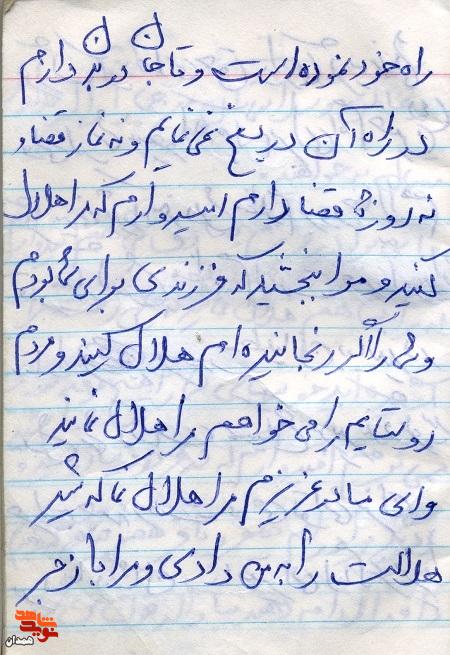 راه خود نموده است و تا جان در بدن دارم
در راه آن دریغ نمی نمایم و نه نماز قضا و
نه روزه قضا دارم امیدوارم که مرا هلال
کنید و مرا ببخشید که فرزندی برای شما بودم
و شما را اگر رنجانیده ام هلال کنید و مردم
روستایم را می خواهم مرا هلال نمایند
وای مادر عزیزم مرا هلال نما که شیر
هلالت را به من دادی و مرا با زجر
نوید شاهد
همدان